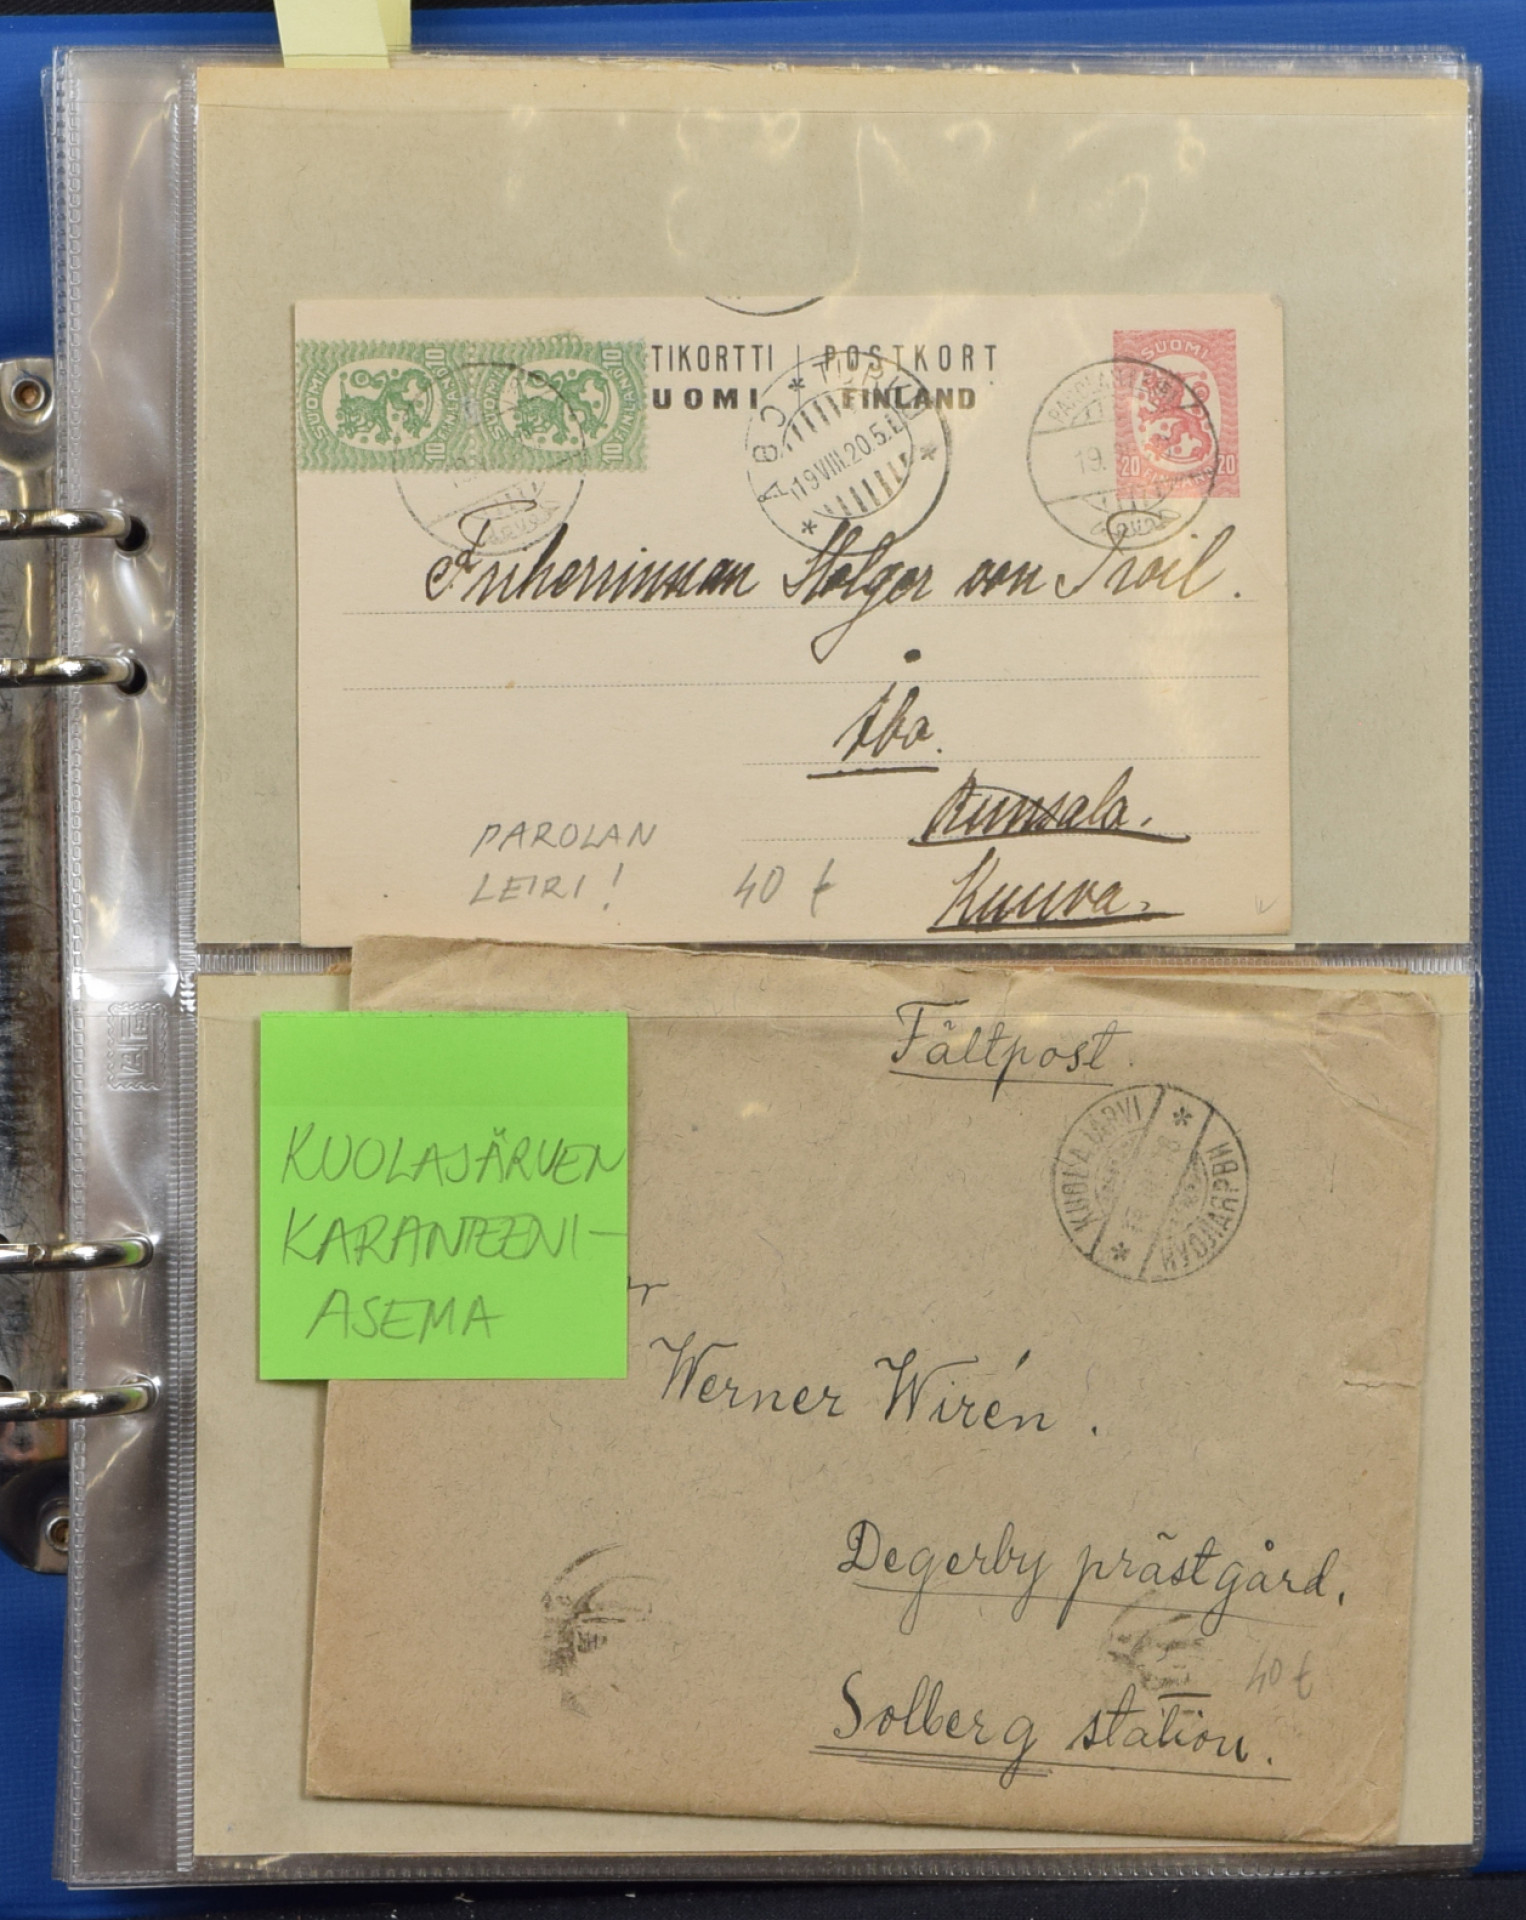 TIKORTTI | POSTKORT
UOMI FINLAND
SUOMI 10 10 FINLAND
SUOMI 10 10 FINLAND
SUOMI
20 20
ÅBO * TURKU
19.VIII.20.5.
19.
Friherrinnan Holger von Troil.
Åbo.
Runsala.
Kuuva.
PAROLAN
LEIRI!
40 €
Fältpost.
KUOLAJÄRVI
KUOLAJÄRVEN
KARANTEENI-
ASEMA
Werner Wirén.
Degerby prästgård.
40 €
Solberg station.